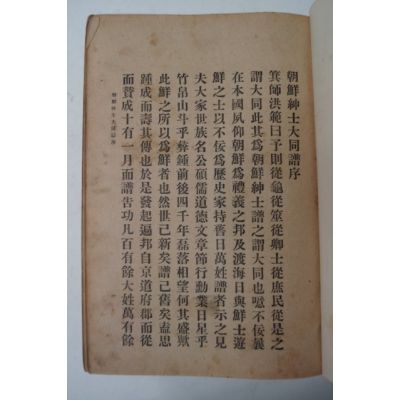 朝鮮紳士大同譜序
箕師洪範曰予則從龜從筮從卿士從庶民從是之
謂大同此其爲朝鮮紳士譜之謂大同也愍不侫曩
在本國夙仰朝鮮爲禮義之邦及渡海日與鮮士遊
鮮之士以不侫爲歷史家持舊日萬姓譜者示之見
夫大家世族名公碩儒道德文章節行勳業日星乎
竹帛山斗乎彝鍾前後四千年磊落相望何其盛歟
此鮮之所以爲鮮者也然世已新矣譜已舊矣盍思
踵成而壽其傳也於是發起遍邦自京道府郡而從
而贊成十有一月而譜告功凡百有餘大姓萬有餘
朝鮮紳士大同譜序